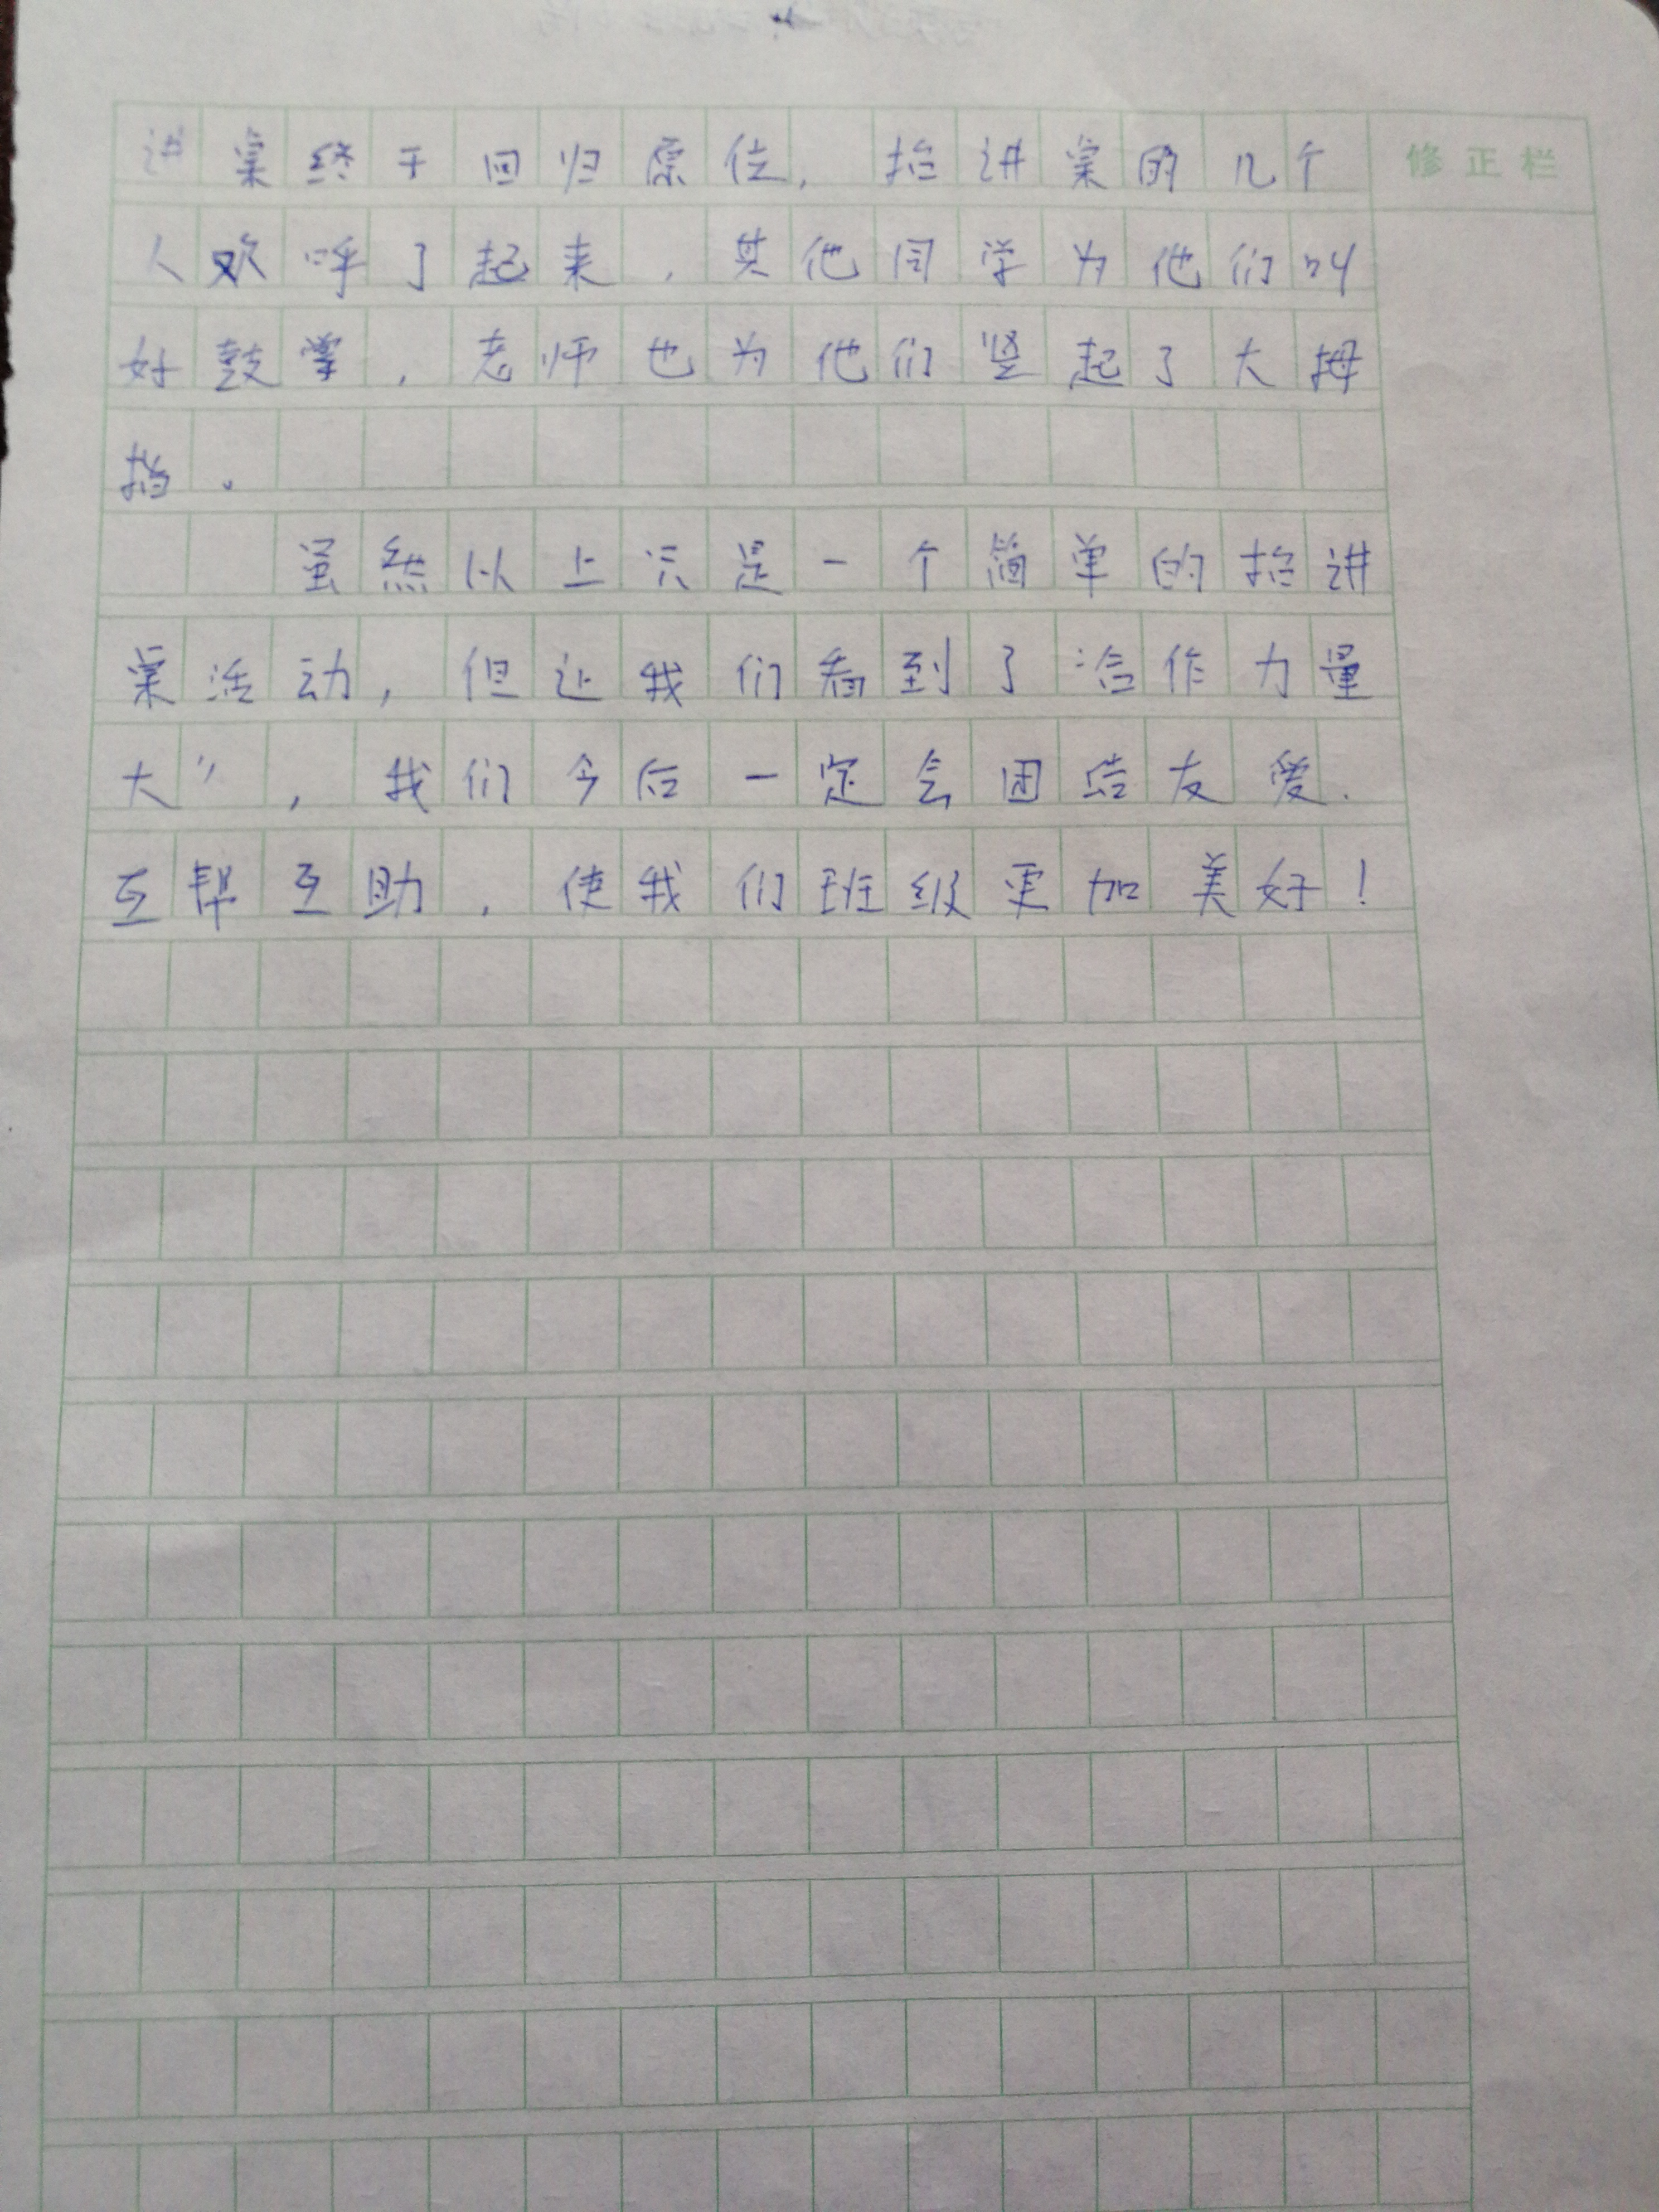 讲案终于回归原位，抬讲案的几个
修正栏
人欢呼了起来，其他同学为他们叫
好鼓掌，老师也为他们竖起了大拇
指。
虽然以上只是一个简单的抬讲
案活动，但让我们看到了“合作力量
大”，我们今后一定会团结友爱、
互帮互助，使我们班级更加美好！